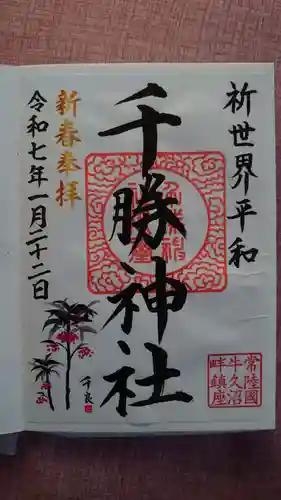 祈世界平和
千勝神社
新春奉拝
令和七年一月二十二日
常陸國
牛久沼
畔鎮座